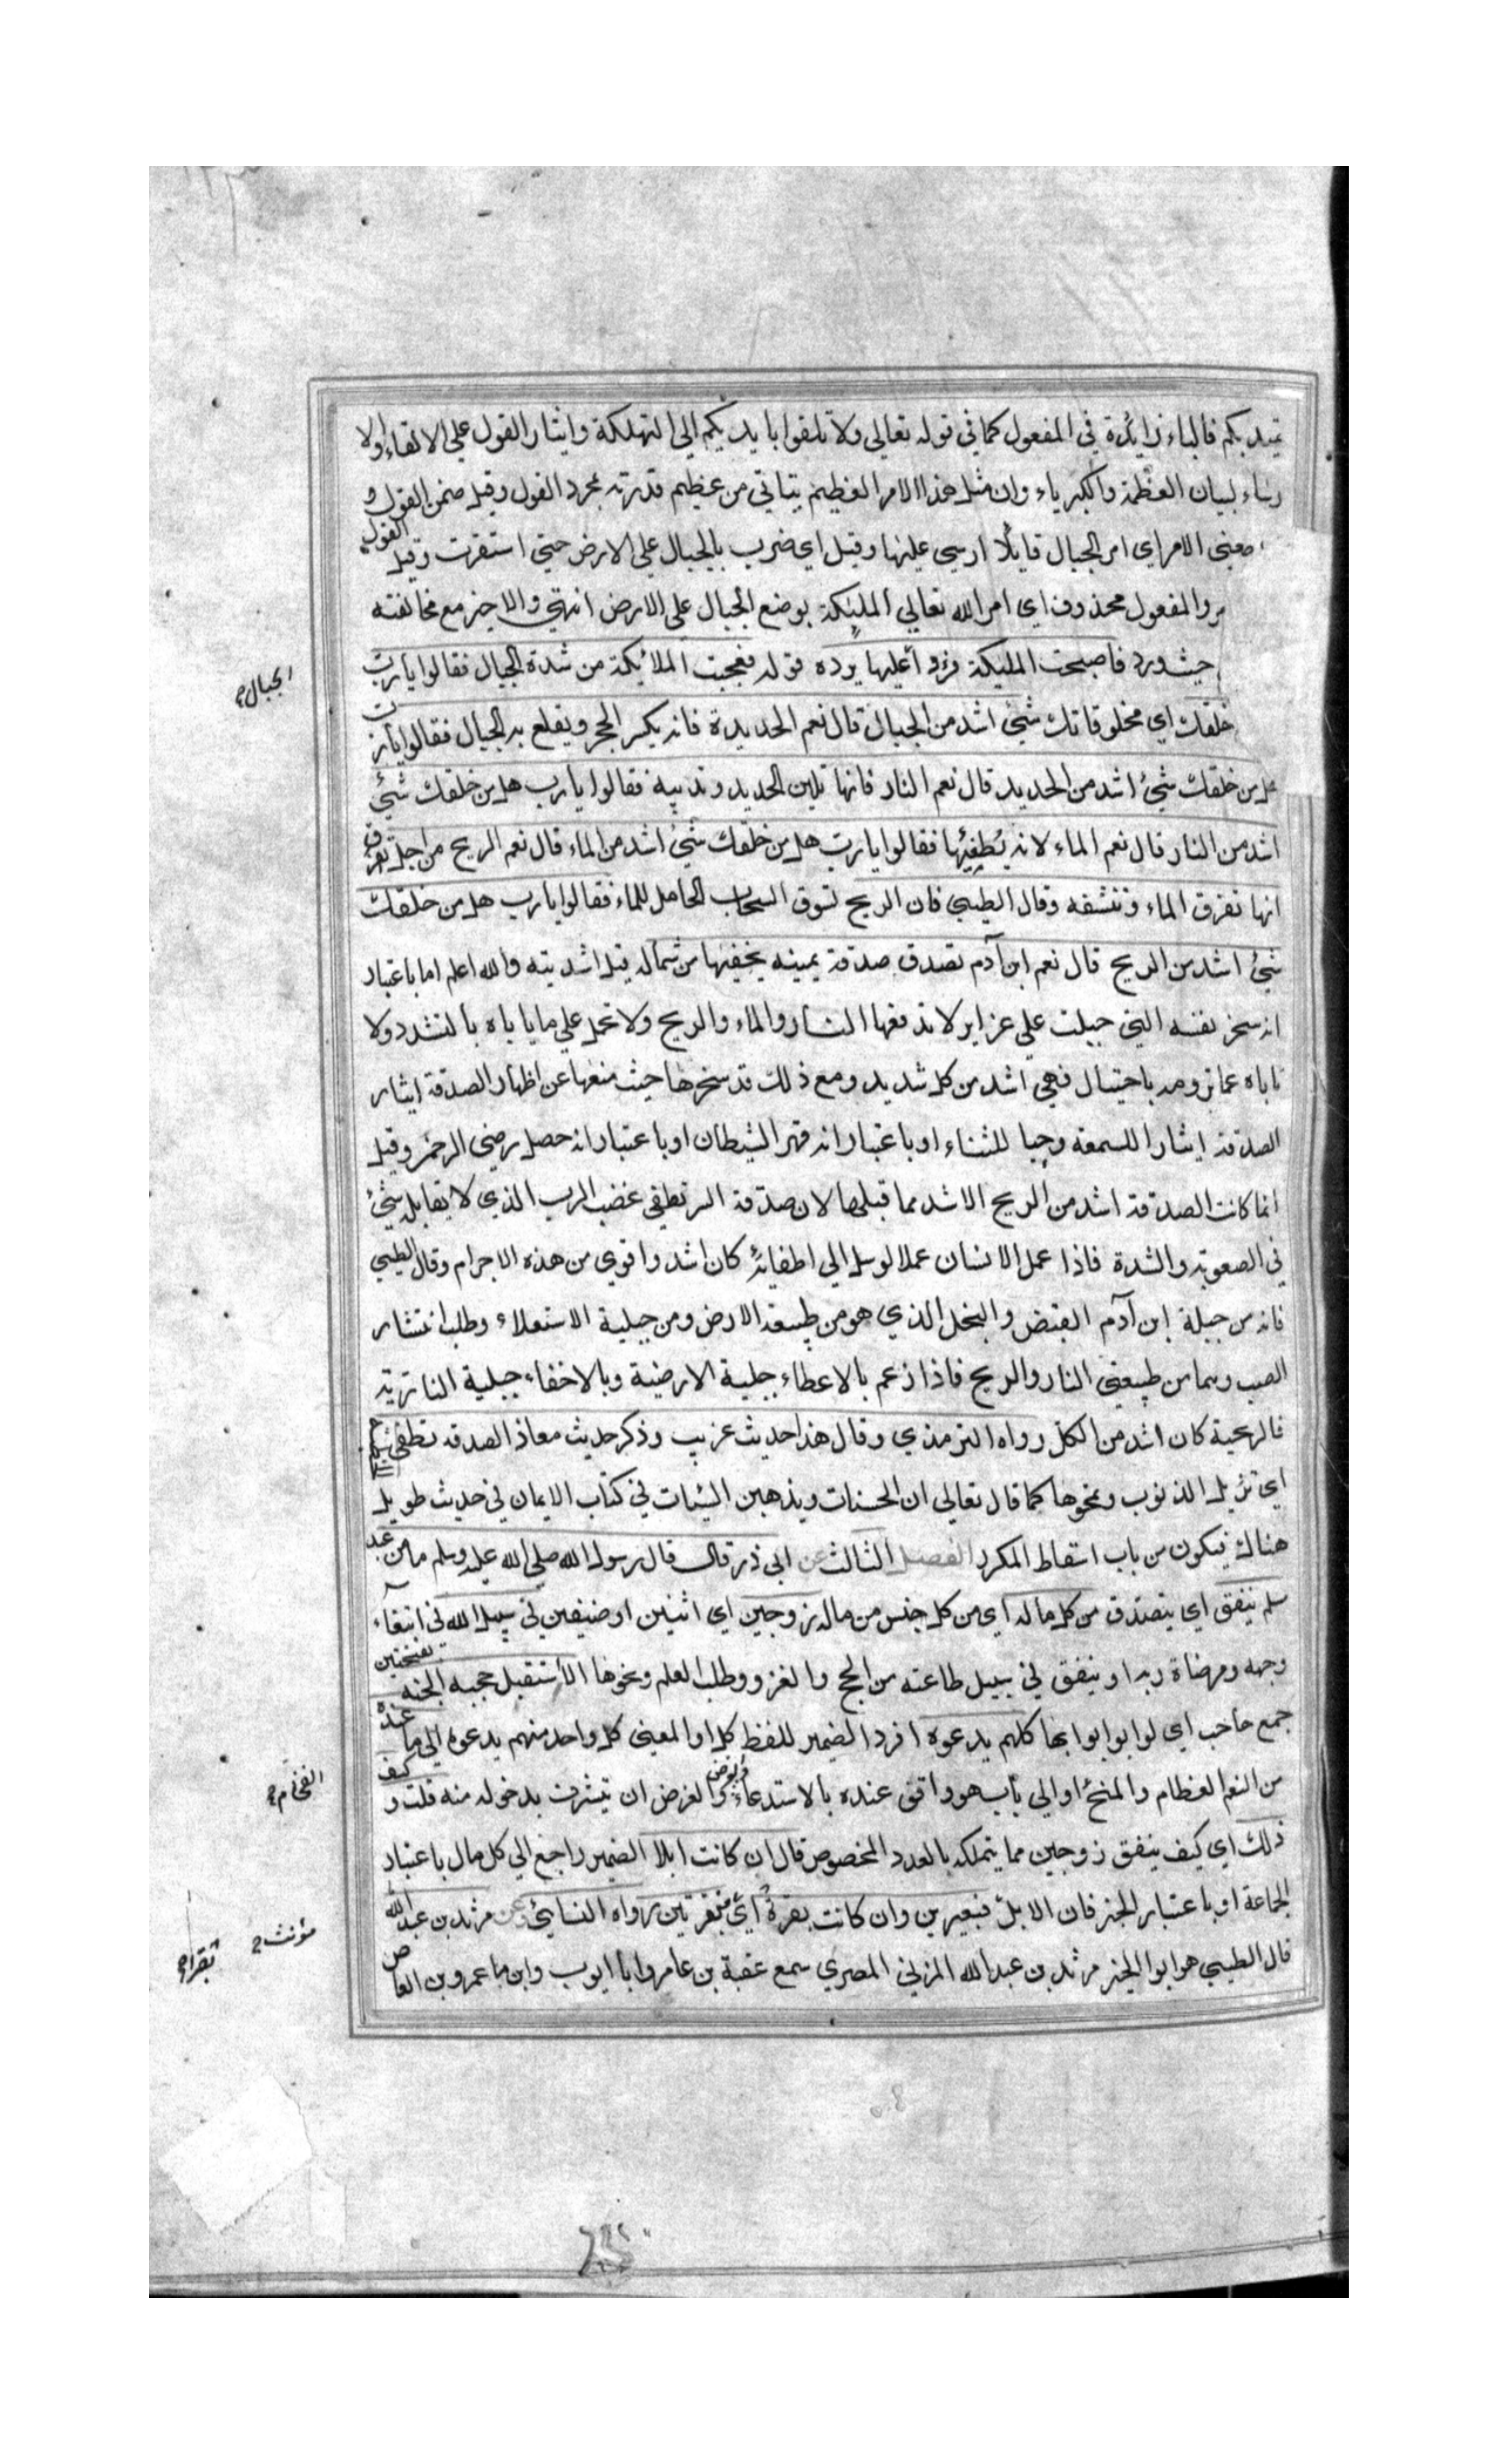 تميد بكم فالباء زايدة في المفعول كما في قوله تعالى ولا تلقوا بايديكم الى التهلكة وايثار القول على الالقاء والا
رساء لبيان العظمة والكبرياء وان مثل هذا الامر العظيم يتاتى من عظيم قدرته بمجرد القول وقيل ضمن القول
معنى الامر اي امر الجبال قايلا ارسي عليها وقيل اي ضرب بالجبال على الارض حتى استقرت وقيل القول
مر والمفعول محذوف اي امر الله تعالى المليكة بوضع الجبال على الارض انتهى والاخير مع مخالفته
حيث ورد فاصبحت المليكة فراوا عليها يرده قوله فعجبت الملائكة من شدة الجبال فقالوا يارب
الجبال
خلقك اي مخلوقاتك شئ اشد من الجبال قال نعم الحديدة فانه يكسر الحجر ويقلع به الجبال فقالوا يارب
هل من خلقك شئ اشد من الحديد قال نعم النار فانها تلين الحديد وتذيبه فقالوا يارب هل من خلقك شئ
اشد من النار قال نعم الماء لانه يطفئها فقالوا يارب هل من خلقك شئ اشد من الماء قال نعم الريح من اجل
انها تفرق الماء وتنشفه وقال الطيبي فان الريح تسوق السحاب الحامل للماء فقالوا يارب هل من خلقك
شئ اشد من الريح قال نعم ابن آدم تصدق صدقة بيمينه يخفيها من شماله قيل اشديته والله اعلم اما باعتبار
انه سخر نفسه التي جبلت على غرايز لا تدفعها النار والماء والريح ولا تحمل على ما ياباه بالتشدد ولا
تاباه عما ترومه باحتيال فهي اشد من كل شديد ومع ذلك قد سخرها حيث منعها عن اظهار الصدقة ايثار
الصدقة ايثارا للسمعة وحبا للثناء او باعتبار انه قهر الشيطان او باعتبار انه حصل رضى الرحمن وقيل
انما كانت الصدقة اشد من الريح الاشد مما قبلها لان صدقة السر تطفئ غضب الرب الذي لا يقابله شئ
في الصعوبة والشدة فاذا عمل الانسان عملا توسل الى اطفائه كان اشد واقوى من هذه الاجرام وقال الطيبي
فانه من جبلة ابن آدم القبض والبخل الذي هو من طبيعة الارض ومن جبلية الاستعلاء وطلب انتشار
الصيت وهما من طبيعتي النار والريح فاذا زعم بالاعطاء جبلية الارضية وبالاخفاء جبلية النارية
فالريحية كان اشد من الكل رواه الترمذي وقال هذا حديث غريب وذكر حديث معاذ الصدقة تطفئ
اي تزيل الذنوب وتمحوها كما قال تعالى ان الحسنات ويذهبن السيئات في كتاب الايمان في حديث طويل
هناك فيكون من باب اسقاط المكرر الفصل الثالث عن ابي ذر قال قال رسول الله صلى الله عليه وسلم ما من عبد
سلم ينفق اي يتصدق من كل ماله اي من كل جنس من ماله زوجين اي اثنين او صنفين في سبيل الله في ابتغاء
وجهه ومرضاة ربه او ينفق في سبيل طاعته من الحج والغزو وطلب العلم ونحوها الا استقبل حجبه الجنة بفتحتين
جمع حاجب اي لوا ابوابها كلهم يدعوه افرد الضمير للفظ كل او المعنى كل واحد منهم يدعوه الى ما عنده
من النعم العظام والمنح او الى باب هو واقف عنده بالاستدعاء والغرض ان يتشرف بدخوله منه قلت و كيف
الفخام
ذلك اي كيف ينفق زوجين مما يتملكه بالعدد المخصوص قال ان كانت ابلا الضمير راجع الى كل مال باعتبار
الجماعة او باعتبار الخبر فان الابل فبعيرين وان كانت بقرة اي فبقرتين رواه النسائي وعن مرثد بن عبد الله
مؤنث
قال الطيبي هو ابو الخير مرثد بن عبد الله المزني المصري سمع عقبة بن عامر وابا ايوب وابن ما عمرو بن العاص